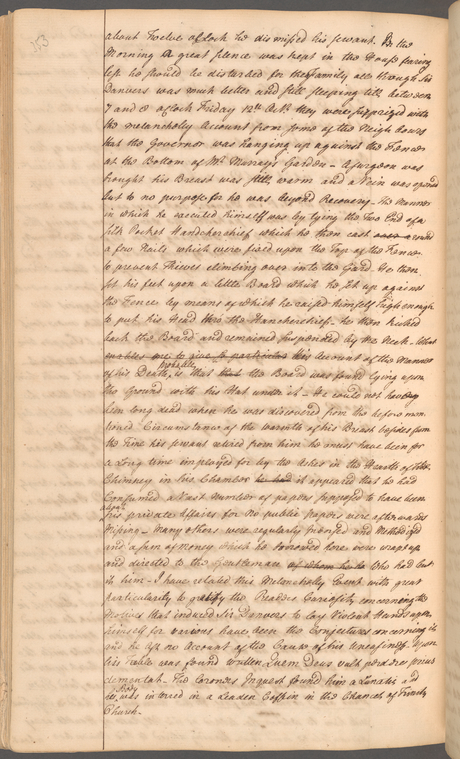 353
about Twelve oClock he dismissed his servant. In the
Morning A great silence was kept in the House fearing
lest he should be disturbed for the Family all thought Sir
Danvers was much better and still sleeping till between
7 and 8 oClock Friday 12th Octr. they were surprized with
the melancholy Account from some of the Neighbours
that the Governor was hanging up against the Fence
at the Bottom of Mr. Murrays Garden – A surgeon was
brought his Breast was still warm and a Vein was opened
but to no purpose for he was beyond Recovery – The Manner
in which he executed himself was by tying the Two End of a
silk Pocket Handcherchief which he then cast over round
a few Nails which were fixed upon the Top of the Fence
to prevent Thieves climbing over into the Gard. He then
set his feet upon a little Board which he set up against
the Fence by means of which he raised himself high enough
to put his Head thro the Hancherchief – he then kicked
back the Board and remained suspended by the Neck – What
enables me to give so particular this Account of the Manner
probable
of his Death, is that the Board was found lying upon
the Ground with his Hat under it – He could not have
him long dead when he was discovered from the before men
tioned Circumstance of the warmth of his Breast besides from
the Time his servant retired from him he must have been for
a Long time imployed for by the Ashes in the Hearth of the
Chimney in his Chamber he had it appeared that he had
Consumed a Vast Number of papers supposed to have been
about
his private Affairs for No publick papers were afterwards
Missing – Many others were regularly and Methodized
and a sum of Money which he borrowed here were wrapt up
and directed to the Gentleman of whom he ha who had lent
it him – I have related this Melancholy Event with great
particularity to gratify the Readers Curiosity concerning the
Motives that induced Sir Danvers to lay Violent Hands upon
himself for various have been the Conjectures concerning it
and he left no Account of the Cause of his Uneasiness. Upon
his Table was found written, Quem Deus vult perdere prius
dementat – The Coroners Inquest found him a Lunatic and
Body
his was interred in a Leaden Coffin in the Chancel of Trinity
Church.